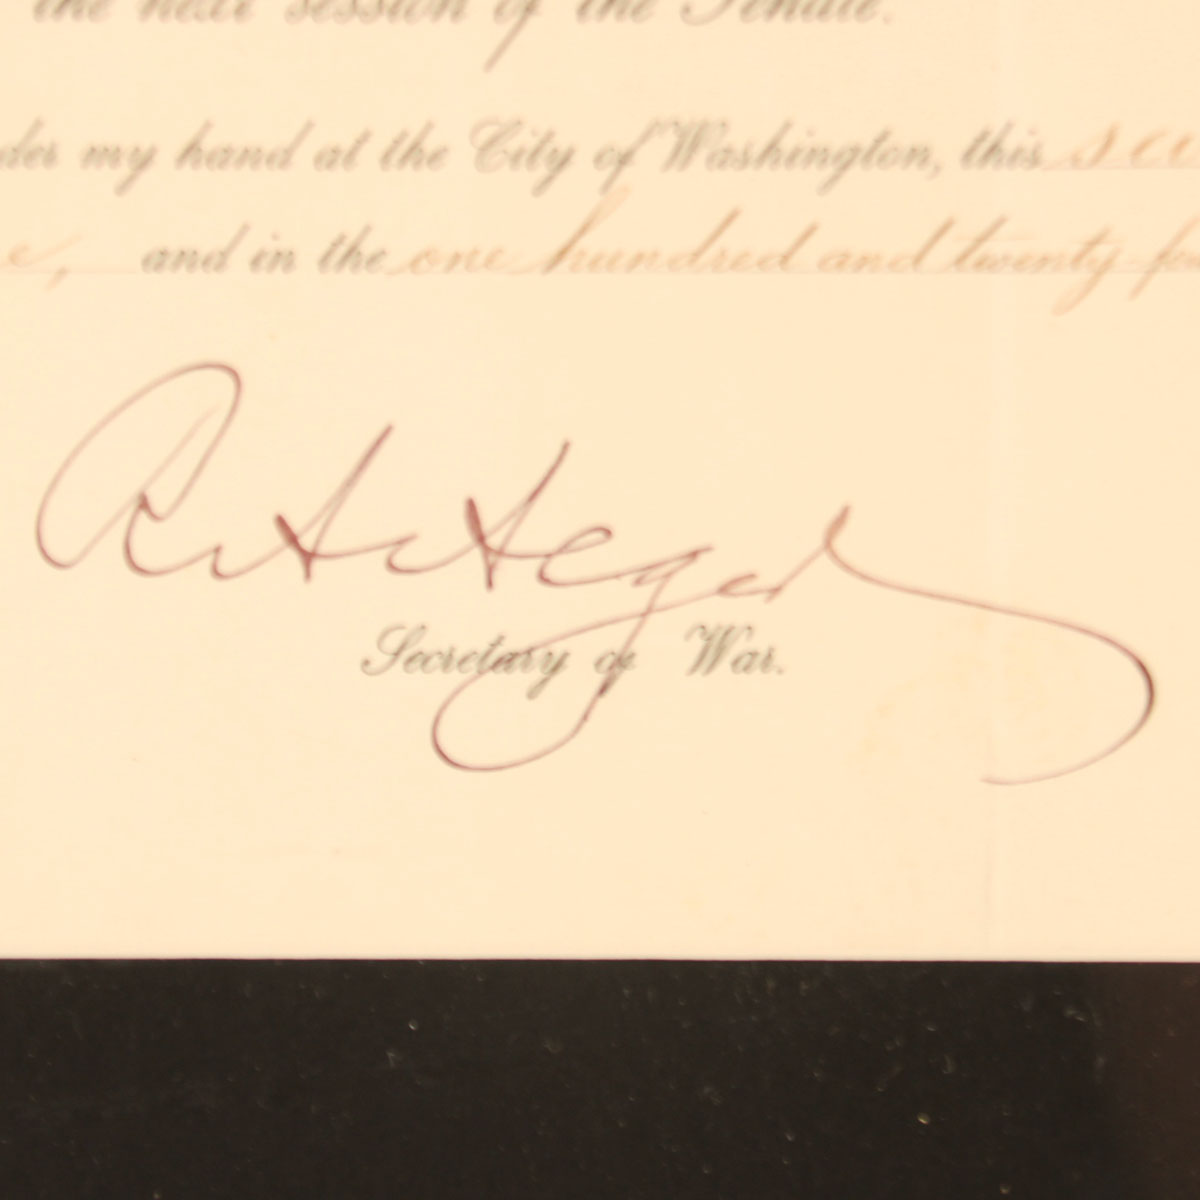 the next session of the Senate.
my hand at the City of Washington, this
and in the one hundred and twenty
Secretary of War.